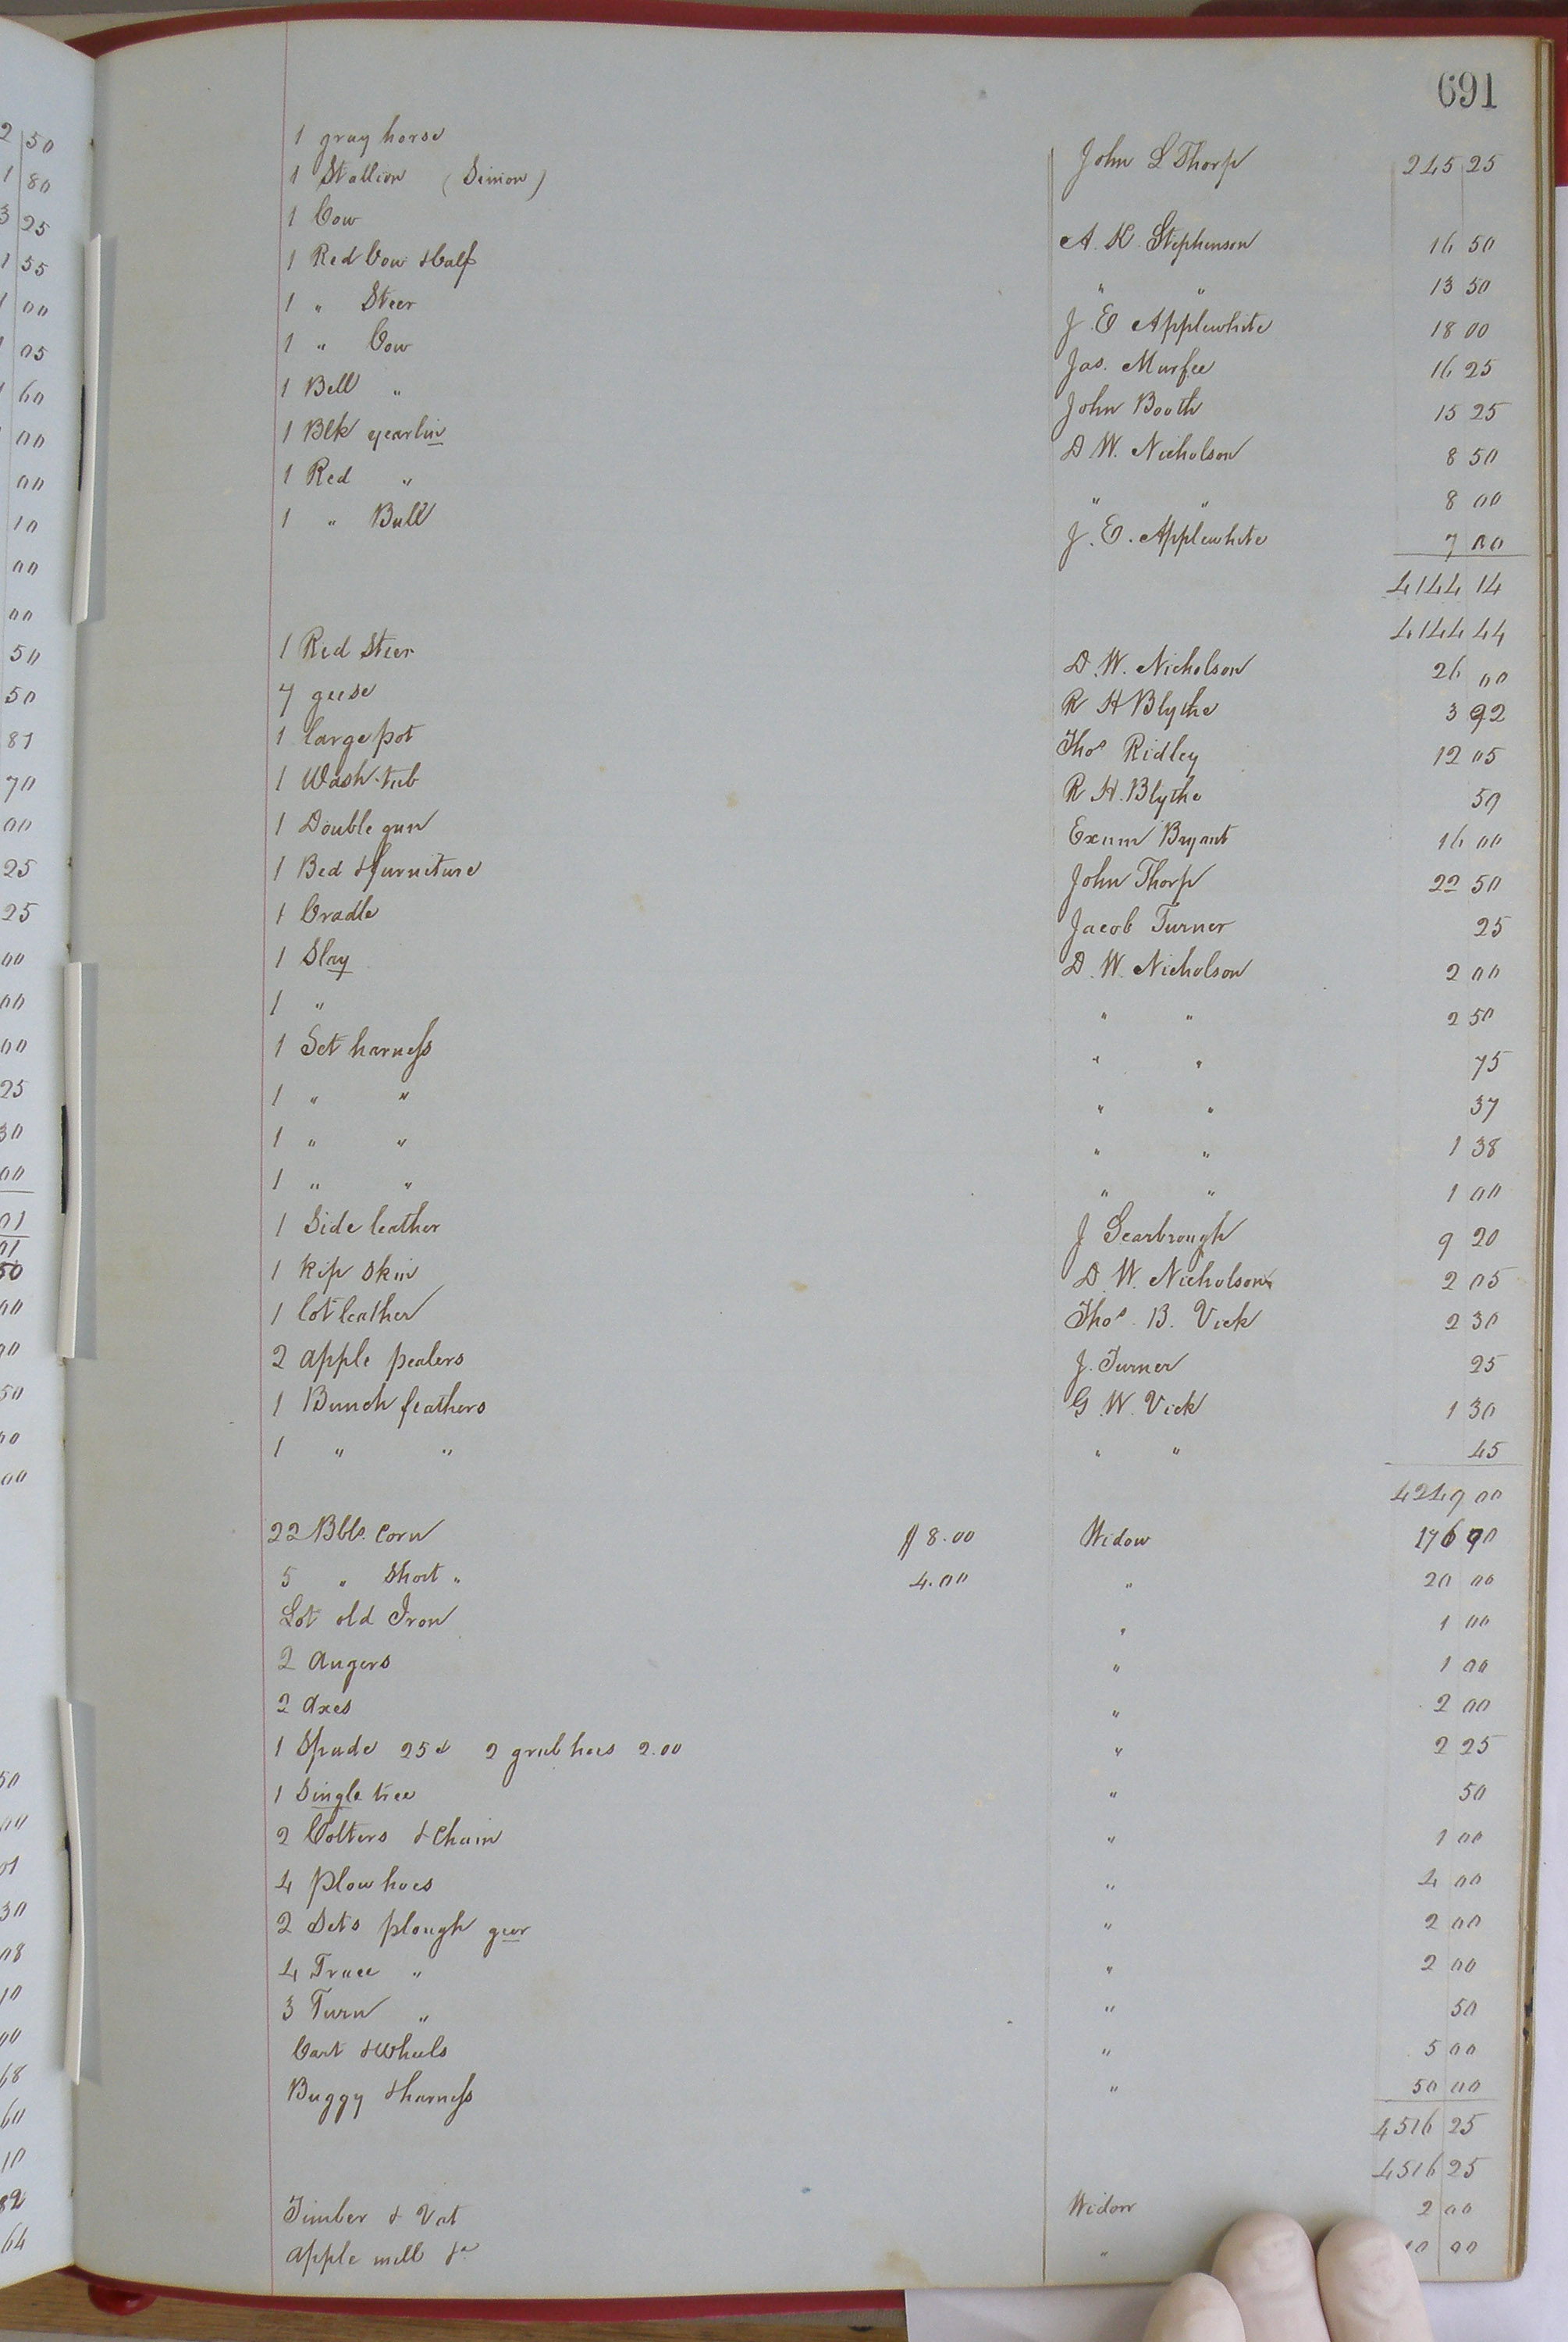 691
1 gray horse
1 Stallion (Simon) John L Thorp 245 25
1 Cow A. K. Stephenson 16 50
1 Red Cow & Calf " " 13 50
1 " Steer J. E Applewhite 18 00
1 " Cow Jas. Murfee 16 25
1 Bell " John Booth 15 25
1 Blk yearlin D W. Nicholson 8 50
1 Red " " " 8 00
1 " Bull J. E. Applewhite 7 00
4144 14
4144 44
1 Red Steer D. W. Nicholson 26 00
7 geese R H Blythe 3 92
1 large pot Thos Ridley 12 05
1 Wash-tub R H. Blythe 50
1 Double gun Exum Bryant 16 00
1 Bed & furniture John Thorp 22 50
1 Cradle Jacob Turner 25
1 Slay D. W. Nicholson 2 00
1 " " " 2 50
1 Set harness " " 75
1 " " " " 37
1 " " " " 1 38
1 " " " " 1 00
1 Side leather J Scarbrough 9 20
1 Kip Skin D. W. Nicholson 2 05
1 lot leather Thos. B. Vick 2 30
2 apple pealers J. Turner 25
1 Bunch feathers G. W. Vick 1 30
1 " " " " 45
4249 00
22 Bbls. Corn $ 8.00 Widow 176 00
5 " Short " 4.00 " 20 00
Lot old Iron " 1 00
2 augers " 1 00
2 axes " 2 00
1 Spade 25 & 2 grub hoes 2.00 " 2 25
1 Single tree " 50
2 Colters & Chain " 1 00
4 Plow hoes " 4 00
2 Sets plough gear " 2 00
4 Trace " " 2 00
3 Turn " " 50
Cart & Wheels " 5 00
Buggy & harness " 50 00
4516 25
4516 25
Timber & Vat Widow 2 00
apple mill &c " 10 00